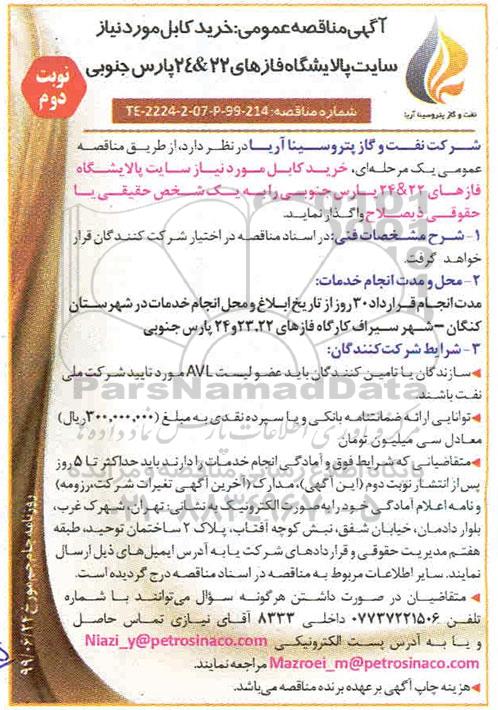 آگهی مناقصه عمومی: خرید کابل مورد نیاز
سایت پالایشگاه فازهای ۲۲&۲۴ پارس جنوبی
نوبت دوم
نفت و گاز پتروسینا آریا
شماره مناقصه: TE-2224-2-07-P-99-214
شرکت نفت و گاز پتروسینا آریا در نظر دارد، از طریق مناقصه
عمومی یک مرحله‌ای، خرید کابل مورد نیاز سایت پالایشگاه
فازهای ۲۲&۲۴ پارس جنوبی را به یک شخص حقیقی یا
حقوقی ذیصلاح واگذار نماید.
۱- شرح مشخصات فنی: در اسناد مناقصه در اختیار شرکت کنندگان قرار
خواهد گرفت.
۲- محل و مدت انجام خدمات:
مدت انجام قرارداد ۳۰ روز از تاریخ ابلاغ و محل انجام خدمات در شهرستان
کنگان – شهر سیراف کارگاه فازهای ۲۲،۲۳ و ۲۴ پارس جنوبی
۳- شرایط شرکت کنندگان:
سازندگان یا تامین کنندگان باید عضو لیست AVL مورد تایید شرکت ملی
نفت باشند.
توانایی ارائه ضمانتنامه بانکی و یا سپرده نقدی به مبلغ (۳۰۰,۰۰۰,۰۰۰ ریال)
معادل سی میلیون تومان
متقاضیانی که شرایط فوق و آمادگی انجام خدمات را دارند باید حداکثر تا ۵ روز
پس از انتشار نوبت دوم (این آگهی)، مدارک (آخرین آگهی تغیرات شرکت، رزومه)
و نامه اعلام آمادگی خود را به صورت الکترونیک به نشانی: تهران، شهرک غرب،
بلوار دادمان، خیابان شفق، نبش کوچه آفتاب، پلاک ۲ ساختمان توحید، طبقه
هفتم مدیریت حقوقی و قراردادهای شرکت یا به آدرس ایمیل‌های ذیل ارسال
نمایند. سایر اطلاعات مربوط به مناقصه در اسناد مناقصه درج گردیده است.
متقاضیان در صورت داشتن هرگونه سؤال می‌توانند با شماره
تلفن ۰۷۷۳۷۲۲۱۵۰۶ داخلی ۸۳۳۳ آقای نیازی تماس حاصل
و یا به آدرس پست الکترونیکی Niazi_y@petrosinaco.com
Mazroei_m@petrosinaco.com مراجعه نمایند.
هزینه چاپ آگهی بر عهده برنده مناقصه می‌باشد.
روزنامه جام جم مورخ ۹۹/۰۶/۲۴
ParsNamadData
۰۲۱-۸۸۳۴۹۶۷۰-۵